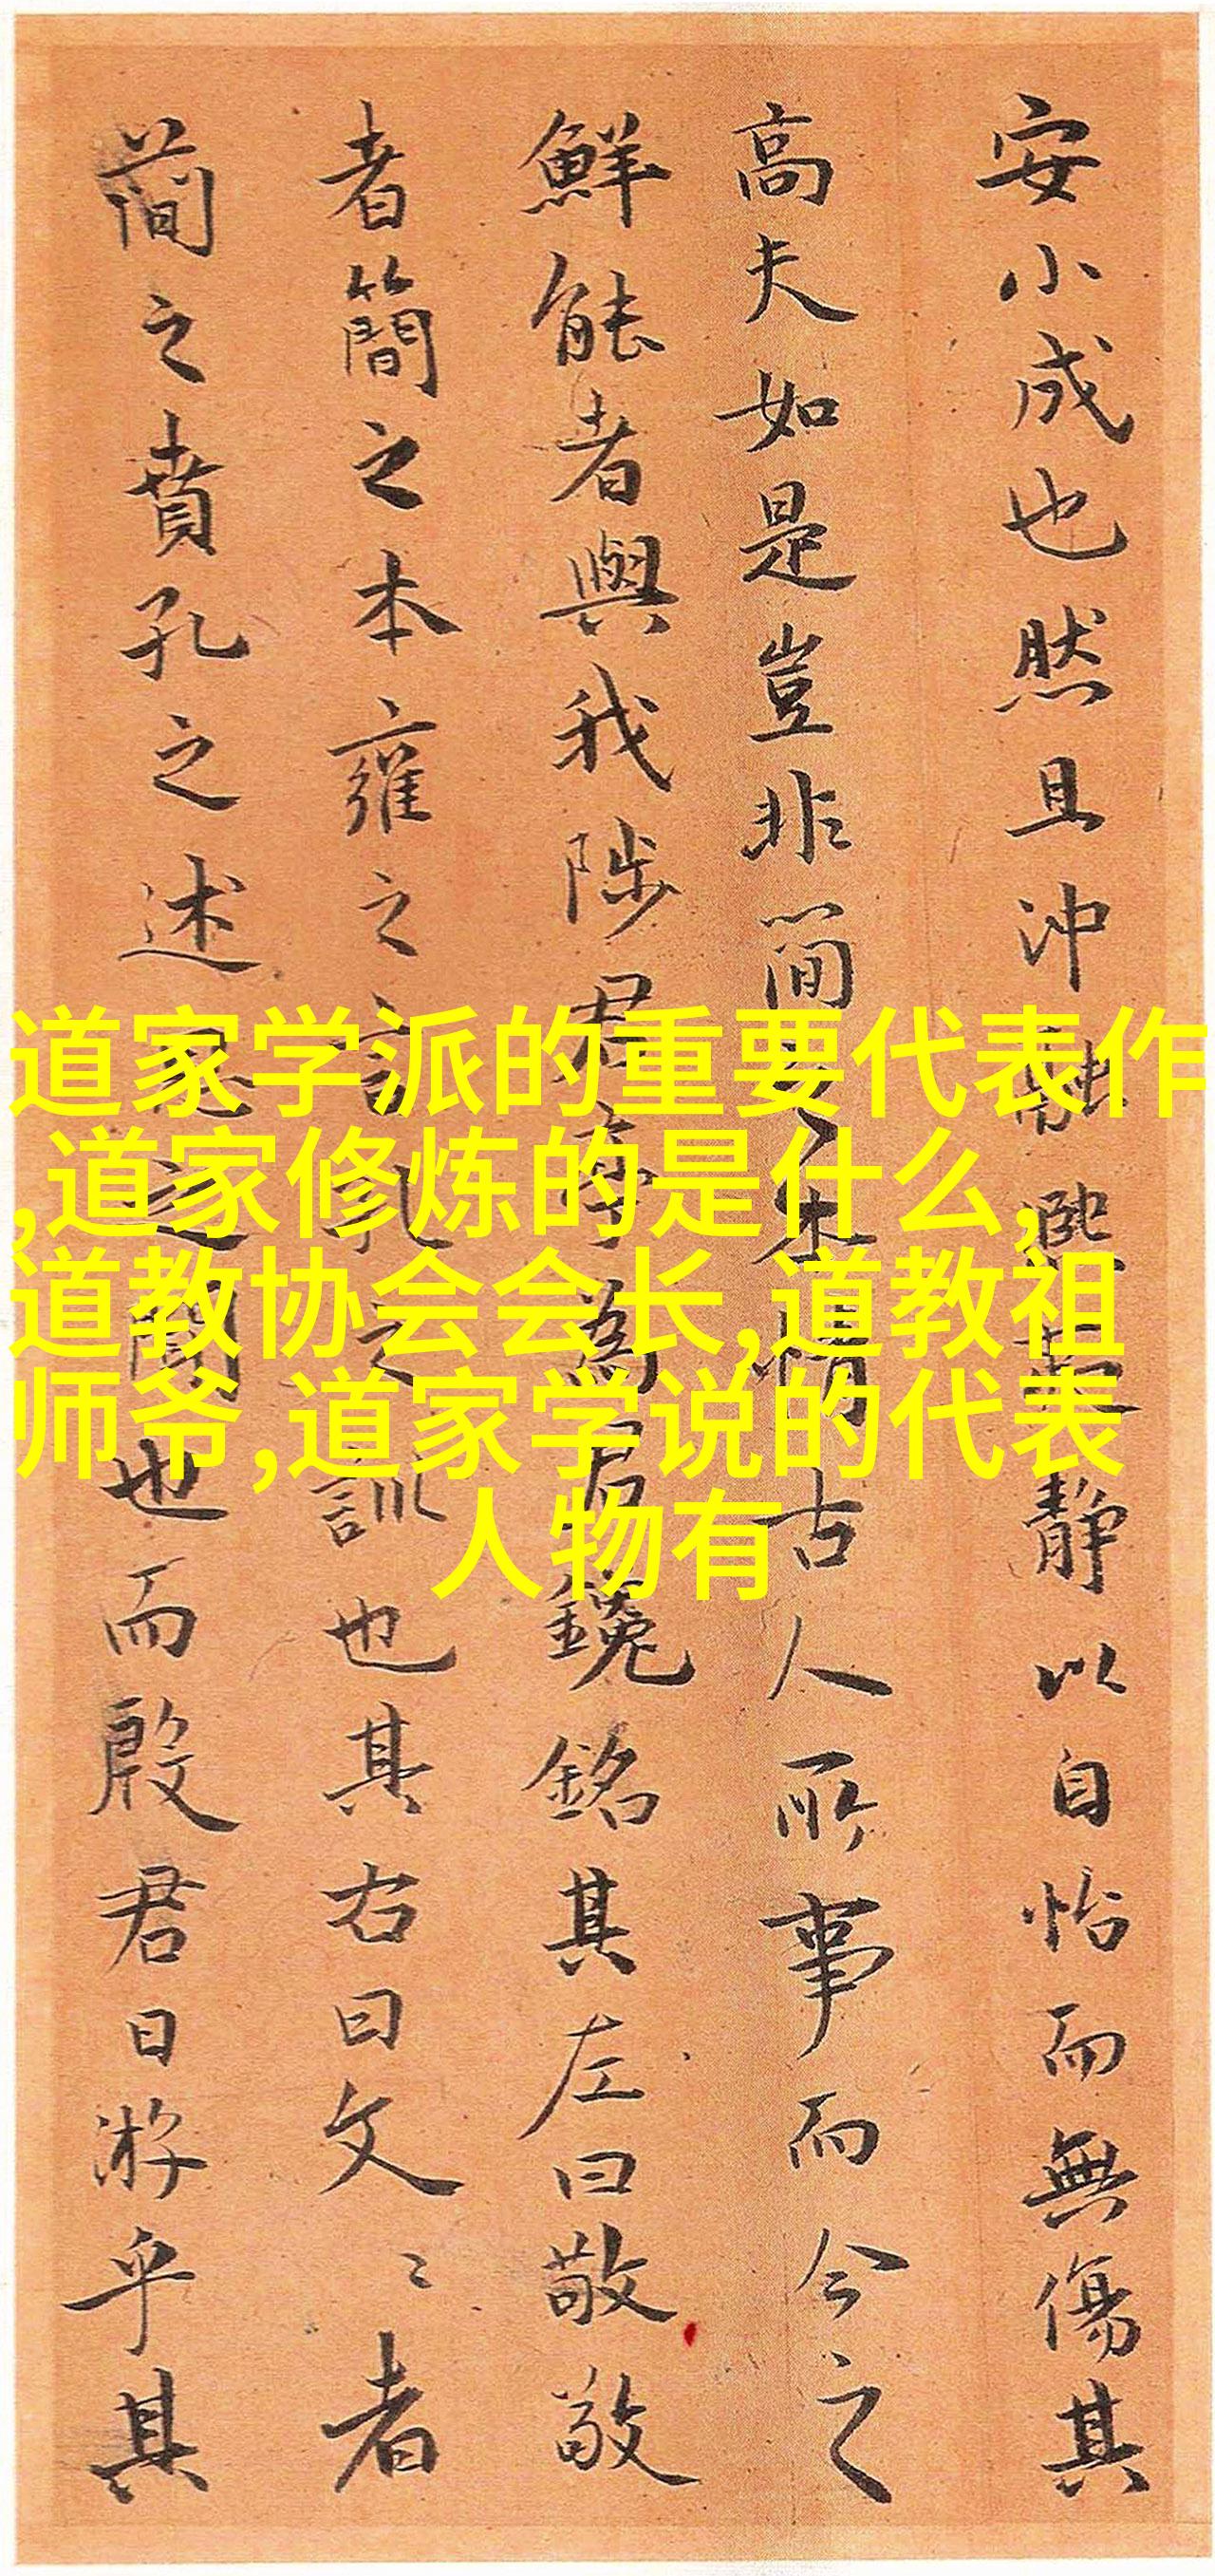 安小成也然且沖融熙
靜以自怡而無傷其
高夫如是豈非簡之
情古人所事而今之
鮮能者與我陟君
為君鐫銘其左曰敬敬
者簡之本雍之言
訓也其右曰文〻者
簡之賁孔之述
之聞也而殷君日游乎其
道家学派的重要代表作
,道家修炼的是什么,
道教协会会长,道教祖
师爷,道家学说的代表
人物有